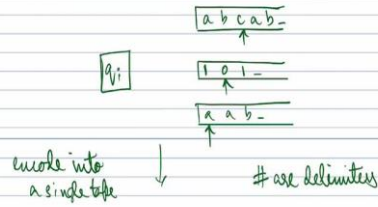 a b c a b _
q_i
1 0 1 _
a a b _
encode into
a single tape
# are delimiters